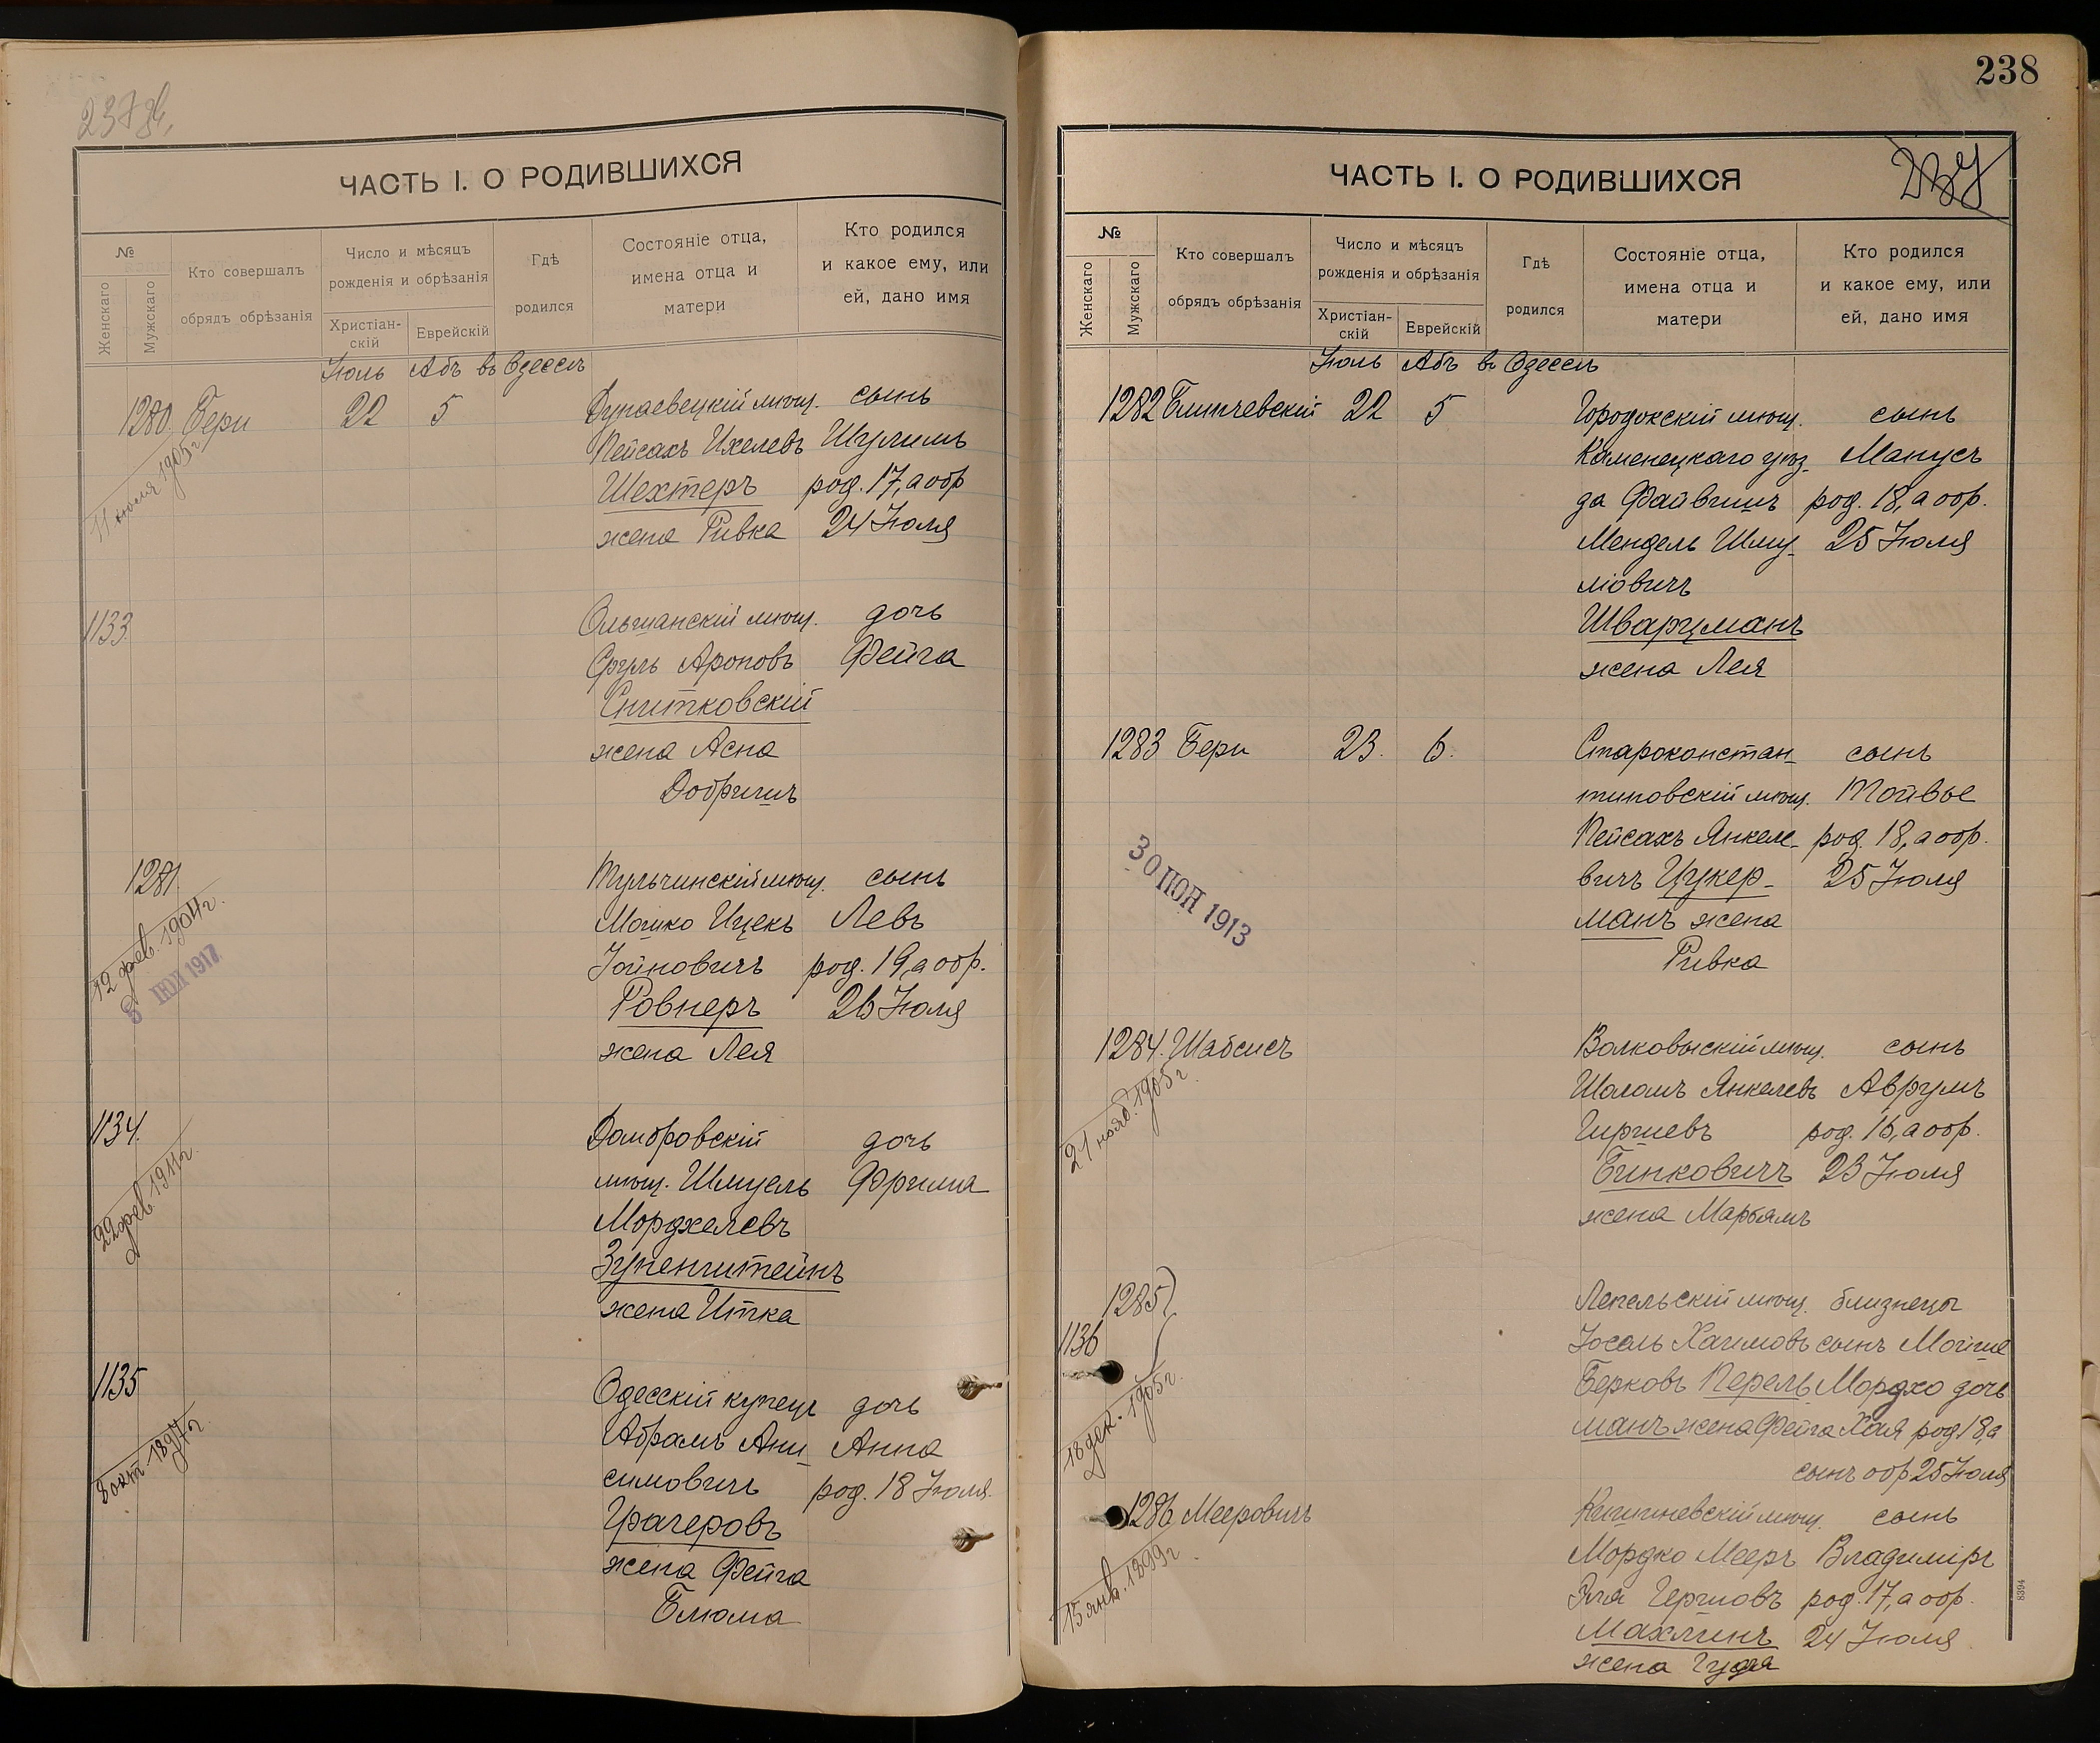 237 об.
ЧАСТЬ I. О РОДИВШИХСЯ
№
Женскаго
Мужскаго
Кто совершалъ
обрядъ обрѣзанія
Число и мѣсяцъ
рожденія и обрѣзанія
Христіан-
скій
Еврейскій
Гдѣ
родился
Состояніе отца,
имена отца и
матери
Кто родился
и какое ему, или
ей, дано имя
Іюль Абъ въ Одессѣ
1280. Бери 22 5 Дунаевецкій мѣщ. сынъ
Пейсахъ Ихелевъ Шулимъ
Шехтеръ род. 17, а обр
жена Ривка 24 Іюля
11 іюля 1905 г.
1133 Ольшанскій мѣщ. дочь
Сруль Ароновъ Фейга
Снитковскій
жена Асна
Добришъ
1281 Тульчинскій мѣщ. сынъ
Мошко Ицекъ Левъ
Іойновичъ род. 19, а обр.
Ровнеръ 26 Іюля
жена Лея
12 фев. 1904 г.
8 ІЮН 1917
1134. Домбровскій дочь
мѣщ. Шмуель Фрима
Морджелевъ
Зупенштейнъ
жена Итка
22 фев. 1911 г.
1135 Одесскій купецъ дочь
Абрамъ Ани- Анна
симовичъ род. 18 Іюля.
Грагеровъ
жена Фейга
Блюма
8 окт. 1897 г.
238
237
ЧАСТЬ I. О РОДИВШИХСЯ
№
Женскаго
Мужскаго
Кто совершалъ
обрядъ обрѣзанія
Число и мѣсяцъ
рожденія и обрѣзанія
Христіан-
скій
Еврейскій
Гдѣ
родился
Состояніе отца,
имена отца и
матери
Кто родился
и какое ему, или
ей, дано имя
Іюль Абъ въ Одессѣ
1282 Блинчевскій 22 5 Городокскій мѣщ. сынъ
Каменецкаго уѣз- Манусъ
да Файвишъ род. 18, а обр.
Мендель Шму- 25 Іюля
ліовичъ
Шварцманъ
жена Лея
1283 Бери 23. 6. Староконстан- сынъ
тиновскій мѣщ. Тойвье
Пейсахъ Янкеле- род. 18, а обр.
вичъ Цукер- 25 Іюля
манъ жена
Ривка
30 ІЮН 1913
1284. Шабсисъ Волковыскій мѣщ. сынъ
Шоломъ Янкелевъ Аврумъ
Гиршевъ род. 16, а обр.
Бинковичъ 23 Іюля
жена Марьямъ
21 нояб. 1905 г.
1285 Лепельскій мѣщ. близнецы
1136 Іосель Хаимовъ сынъ Мойше
Берковъ Перель- Мордхо дочь
манъ жена Фейга Хая род 18, а
сынъ обр 25 Іюля
18 дек. 1905 г.
1286 Мееровичъ Кишиневскій мѣщ. сынъ
Мордко Мееръ Владиміръ
Эля Гершовъ род. 17, а обр.
Махлинъ 24 Іюля
жена Гудя
15 янв. 1899 г.
8394